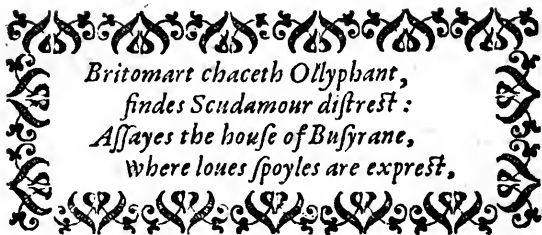 Britomart chaceth Ollyphant,
findes Scudamour diſtreſt :
Aſſayes the houſe of Buſyrane,
Where loues ſpoyles are expreſt,